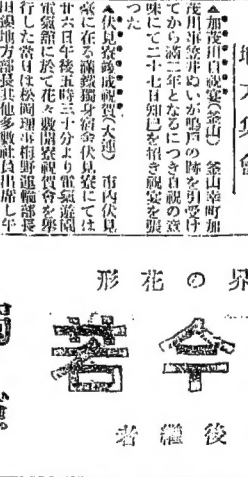 地方集會
▲加茂川自祝宴(釜山) 釜山幸町加
茂川事笹井ぬいが鳴戸の跡を引受け
てから滿三年となるにつき自祝の意
味にて二十七日知己を招き祝宴を張
つた
▲伏見寮落成祝賀(大連) 市内伏見
臺に在る滿鐵獨身宿舍伏見寮にては
廿六日午後五時三十分より電氣遊園
電氣館に於て花々敷開寮祝賀會を擧
行した當日は松岡理事相野運輸部長
田地方部長其他多數社員出席し午
界の花形
若今
後繼者